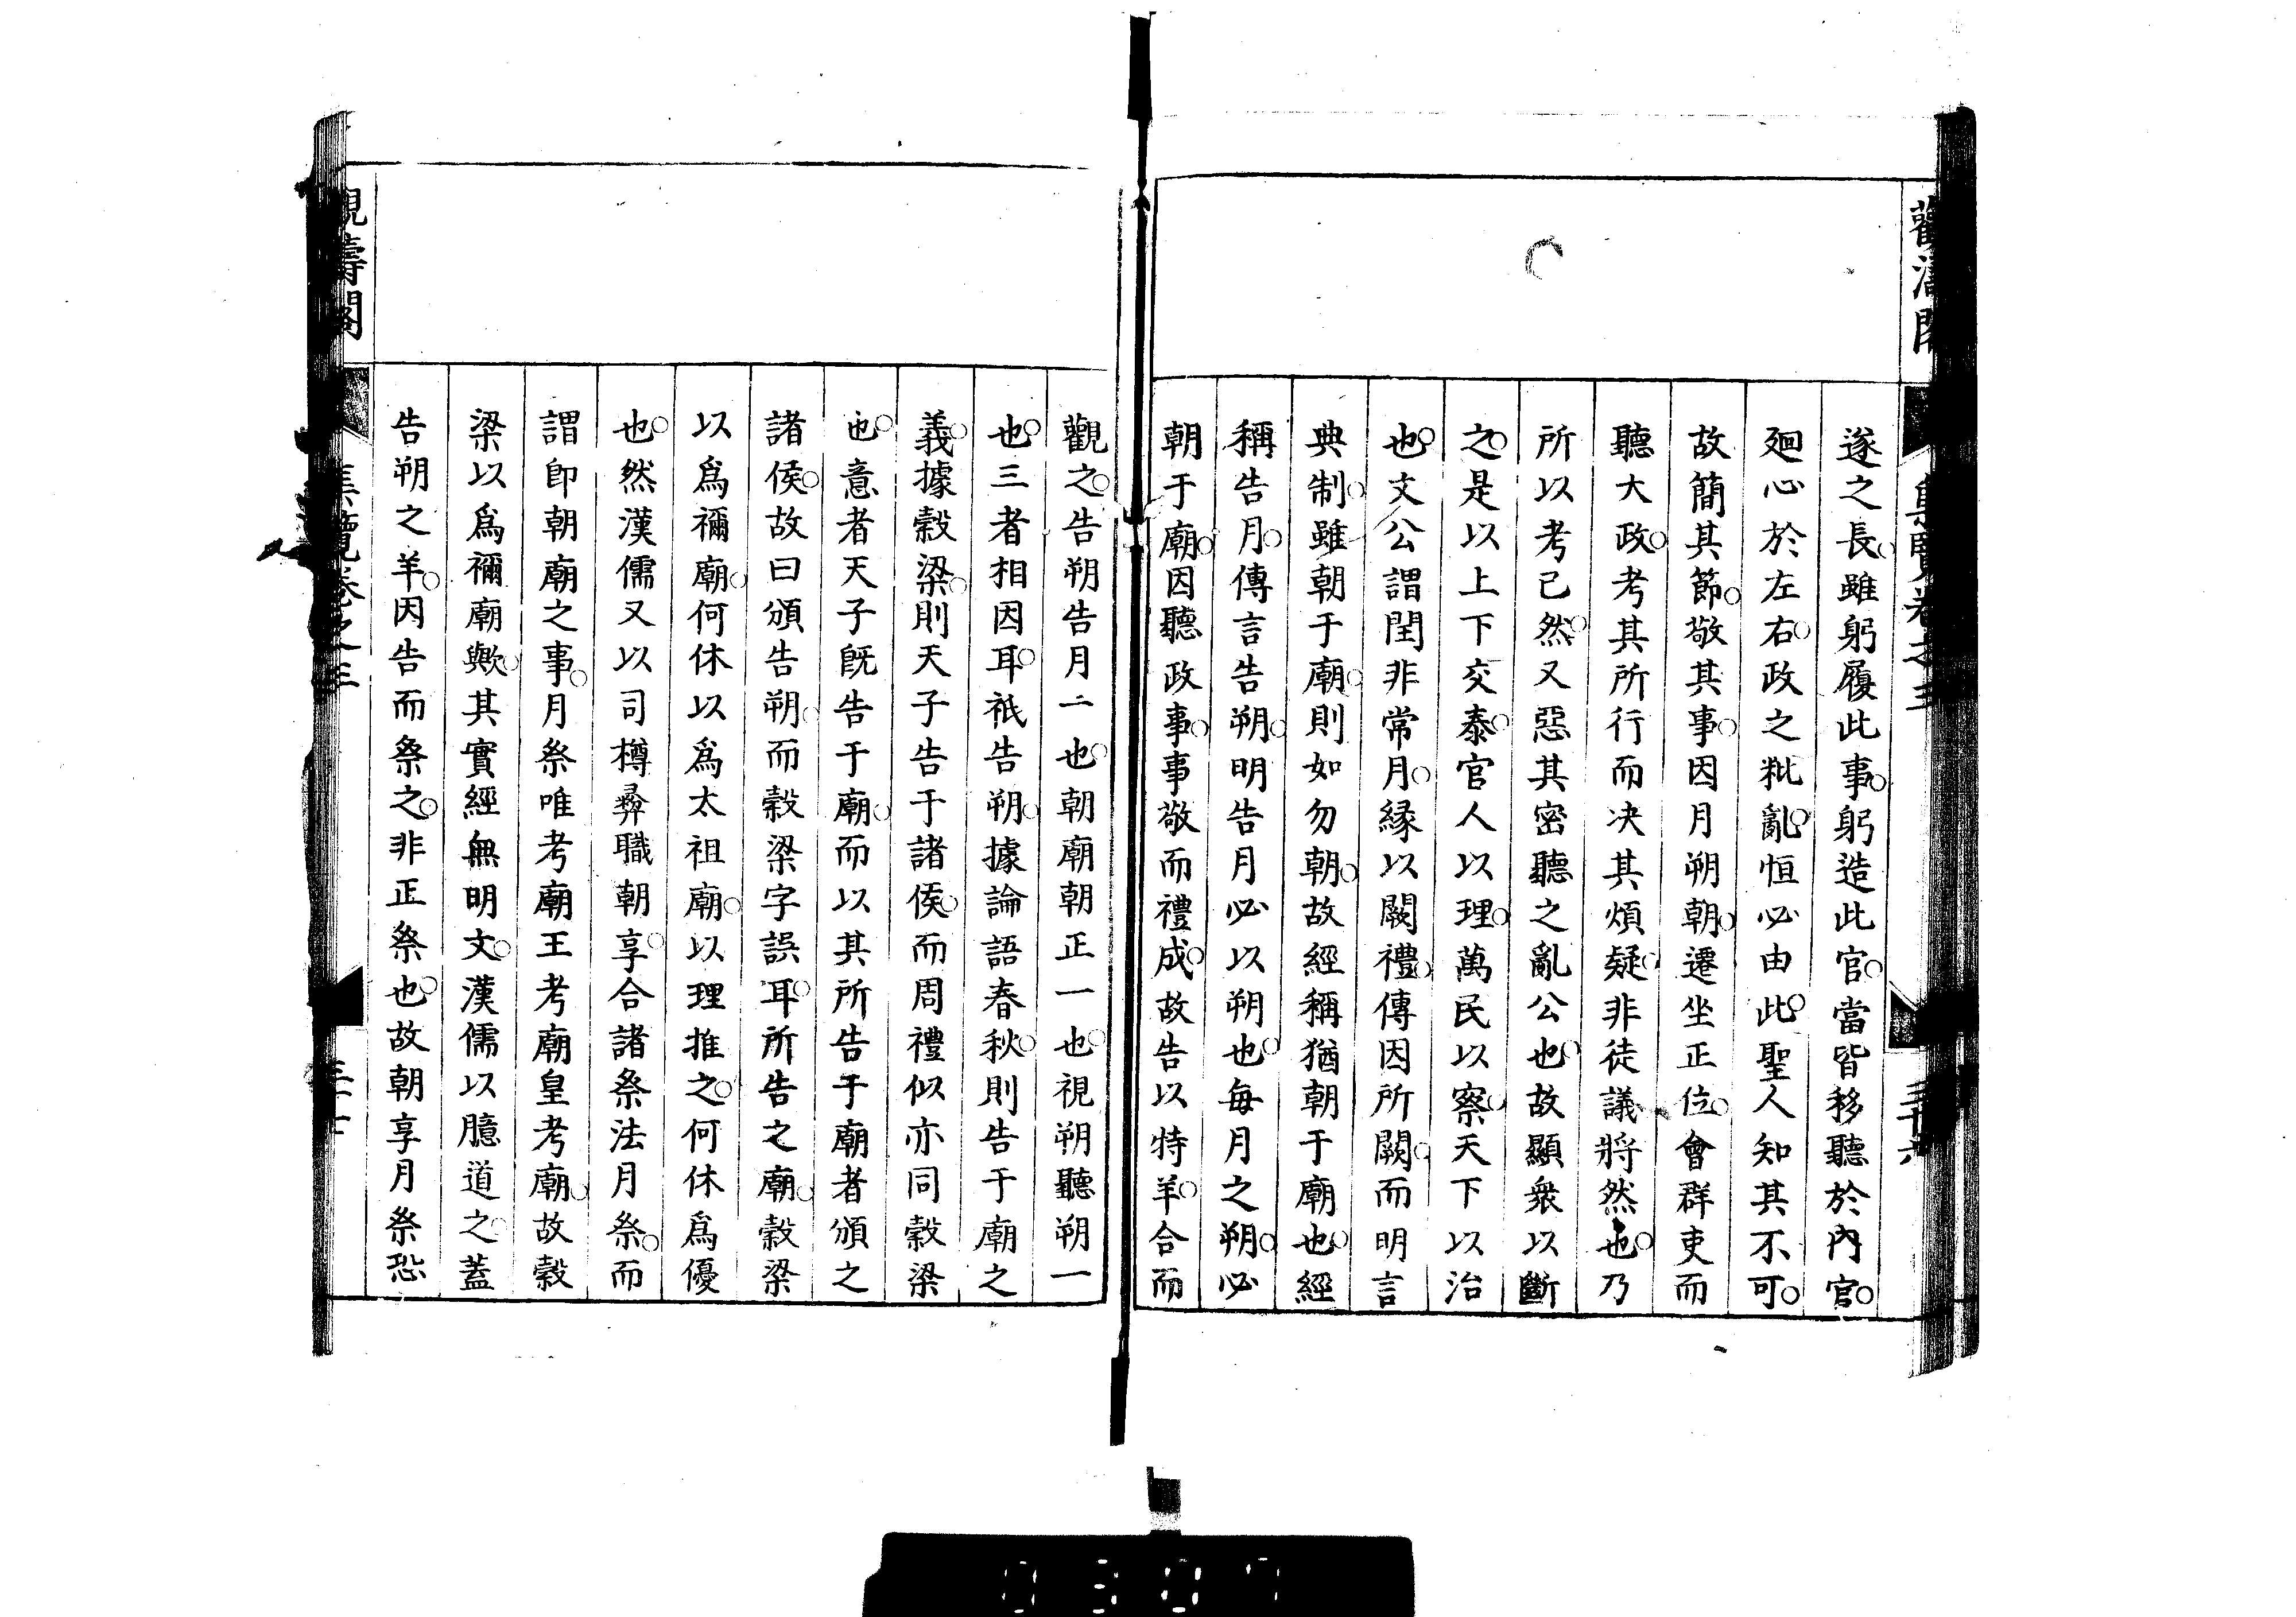 遂之長○雖躬履此事○躬造此官○當皆移聽於內官○
廻心於左右○政之粃亂○恒必由此○聖人知其不可○
故簡其節○敬其事○因月朔朝○遷坐正位○會群吏而
聽大政○考其所行而决其煩疑○非徒議將然也○乃
所以考已然○又惡其密聽之亂公也○故顯衆以斷
之○是以上下交泰○官人以理○萬民以察○天下以治
也○文公謂閏非常月○縁以闕禮○傳因所闕○而明言
典制○雖朝于廟○則如勿朝○故經稱猶朝于廟也○經
稱告月○傳言告朔○明告月必以朔也○每月之朔○必
朝于廟○因聽政事○事敬而禮成○故告以特羊○合而
觀之○告朔告月二也○朝廟朝正一也○視朔聽朔一
也○三者相因耳○祇告朔○據論語春秋○則告于廟之
義○據穀梁○則天子告于諸侯○而周禮似亦同穀梁
也○意者天子旣告于廟○而以其所告于廟者頒之
諸侯○故曰頒告朔○而穀梁字誤耳○所告之廟○穀梁
以爲禰廟○何休以爲太祖廟○以理推之○何休爲優
也○然漢儒又以司樽彛職朝享○合諸祭法月祭○而
謂卽朝廟之事○月祭唯考廟王考廟皇考廟○故穀
梁以爲禰廟歟○其實經無明文○漢儒以臆道之○蓋
告朔之羊○因告而祭之○非正祭也○故朝享月祭恐
集覽卷之三
三十六
0307